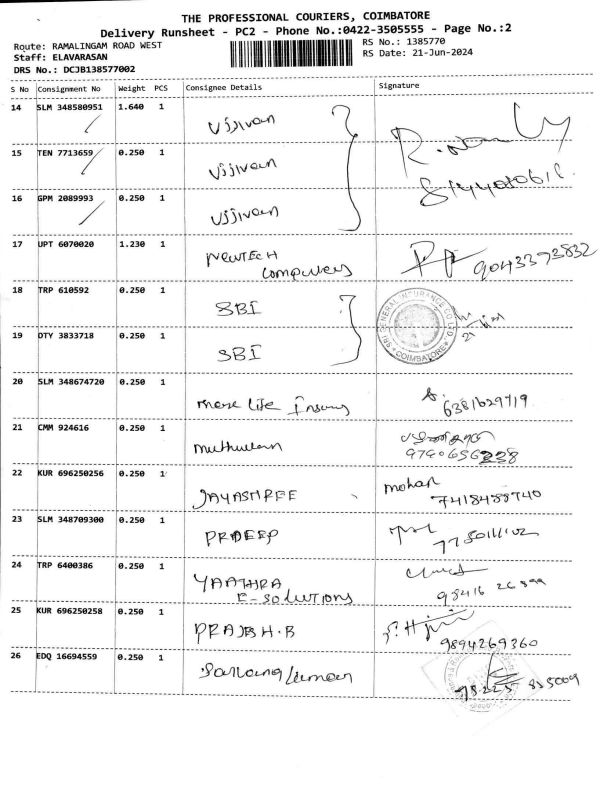 THE PROFESSIONAL COURIERS, COIMBATORE
Delivery Runsheet - PC2 - Phone No.:0422-3505555 - Page No.:2
Route: RAMALINGAM ROAD WEST
RS No.: 1385770
Staff: ELAVARASAN
RS Date: 21-Jun-2024
DRS No.: DCJB138577002
S No Consignment No Weight PCS Consignee Details Signature
14 SLM 348580951 1.640 1 Vijivan
15 TEN 7713659 0.250 1 Vijivan
16 GPM 2089993 0.250 1 Vijivan
17 UPT 6070020 1.230 1 NEWTECH
Computers 9043373832
18 TRP 610592 0.250 1 SBI
SRI GENERAL INSURANCE CO LTD
COIMBATORE
19 DTY 3833718 0.250 1 SBI
20 SLM 348674720 0.250 1 Life
6381629719
21 CMM 924616 0.250 1
9790656228
22 KUR 696250256 0.250 1 JAYASHREE mohan
7418458740
23 SLM 348709300 0.250 1 PRADEEP
24 TRP 6400386 0.250 1 YAATHRA
E-SOLUTIONS 98416
25 KUR 696250258 0.250 1 PRAJBH.B
9894269360
26 EDQ 16694559 0.250 1